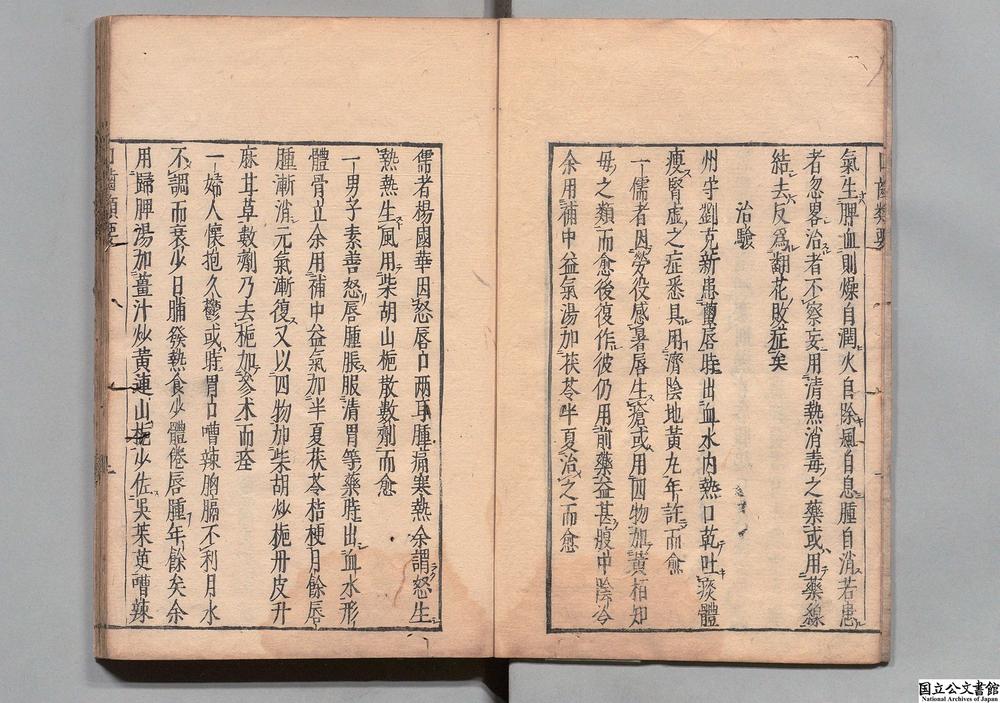 氣生脾血則燥自潤火自除風自息腫自消若患
者忽畧治者不察妄用清熱消毒之藥或用藥線
結去反爲翻花敗症矣
治驗
州守劉克新患繭唇時出血水内熱口乾吐痰體
瘦腎虚之症悉具用濟陰地黄丸年許而愈
一儒者因勞役感暑唇生瘡或用四物加黄栢知
毋之類而愈後復作彼仍用前藥益甚腹中陰冷
余用補中益氣湯加茯苓半夏治之而愈
儒者楊國華因怒唇口兩耳腫痛寒熱余謂怒生
熱熱生風用柴胡山梔散數劑而愈
一男子素善怒唇腫脹服清胃等藥時出血水形
體骨立余用補中益氣加半夏茯苓桔梗月餘唇
腫漸消元氣漸復又以四物加柴胡炒梔丹皮升
麻甘草數劑乃去梔加參术而痊
一婦人懷抱久鬱或時胃口嘈辣胸膈不利月水
不調而衰少日晡發熱食少體倦唇腫年餘矣余
用歸脾湯加薑汁炒黄連山梔少佐吳茱萸嘈辣
口齒類要
國立公文書館
National Archives of Japan